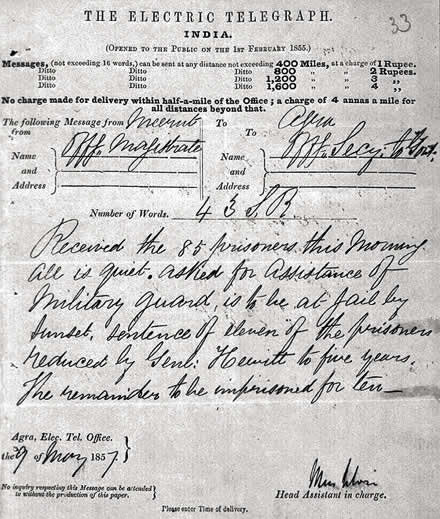 33
THE ELECTRIC TELEGRAPH.
INDIA.
(OPENED TO THE PUBLIC ON THE 1ST FEBRUARY 1855.)
Messages, (not exceeding 16 words,) can be sent at any distance not exceeding 400 Miles, at a charge of 1 Rupee.
Ditto Ditto 800 " " 2 Rupees.
Ditto Ditto 1,200 " " 3 "
Ditto Ditto 1,600 " " 4 "
No charge made for delivery within half-a-mile of the Office; a charge of 4 annas a mile for
all distances beyond that.
The following Message from Meerut To Agra
from Offg. Magistrate To Offg. Secy. to Govt.
Name and Address Name and Address
Number of Words. 43 S.R
Received the 85 prisoners this Morning
all is quiet. asked for Assistance of
Military guard, is to be at jail by
Sunset, sentence of eleven of the prisoners
reduced by Genl: Hewitt to five years.
The remainder to be imprisoned for ten—
Agra, Elec. Tel. Office.
the 9 of May 1857
No inquiry respecting this Message can be attended
to without the production of this paper.
Head Assistant in charge.
Please enter Time of delivery.